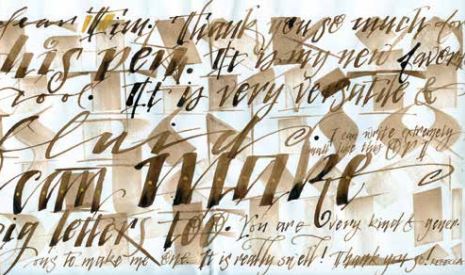 Thank you so much for
his pen. It is my new favori
tool. It is very versatile &
fluid.
I can write extremely
small like this
can make
ig letters too. You are very kind & gener-
ous to make me one. It is really swell! Thank you so! REBECCA